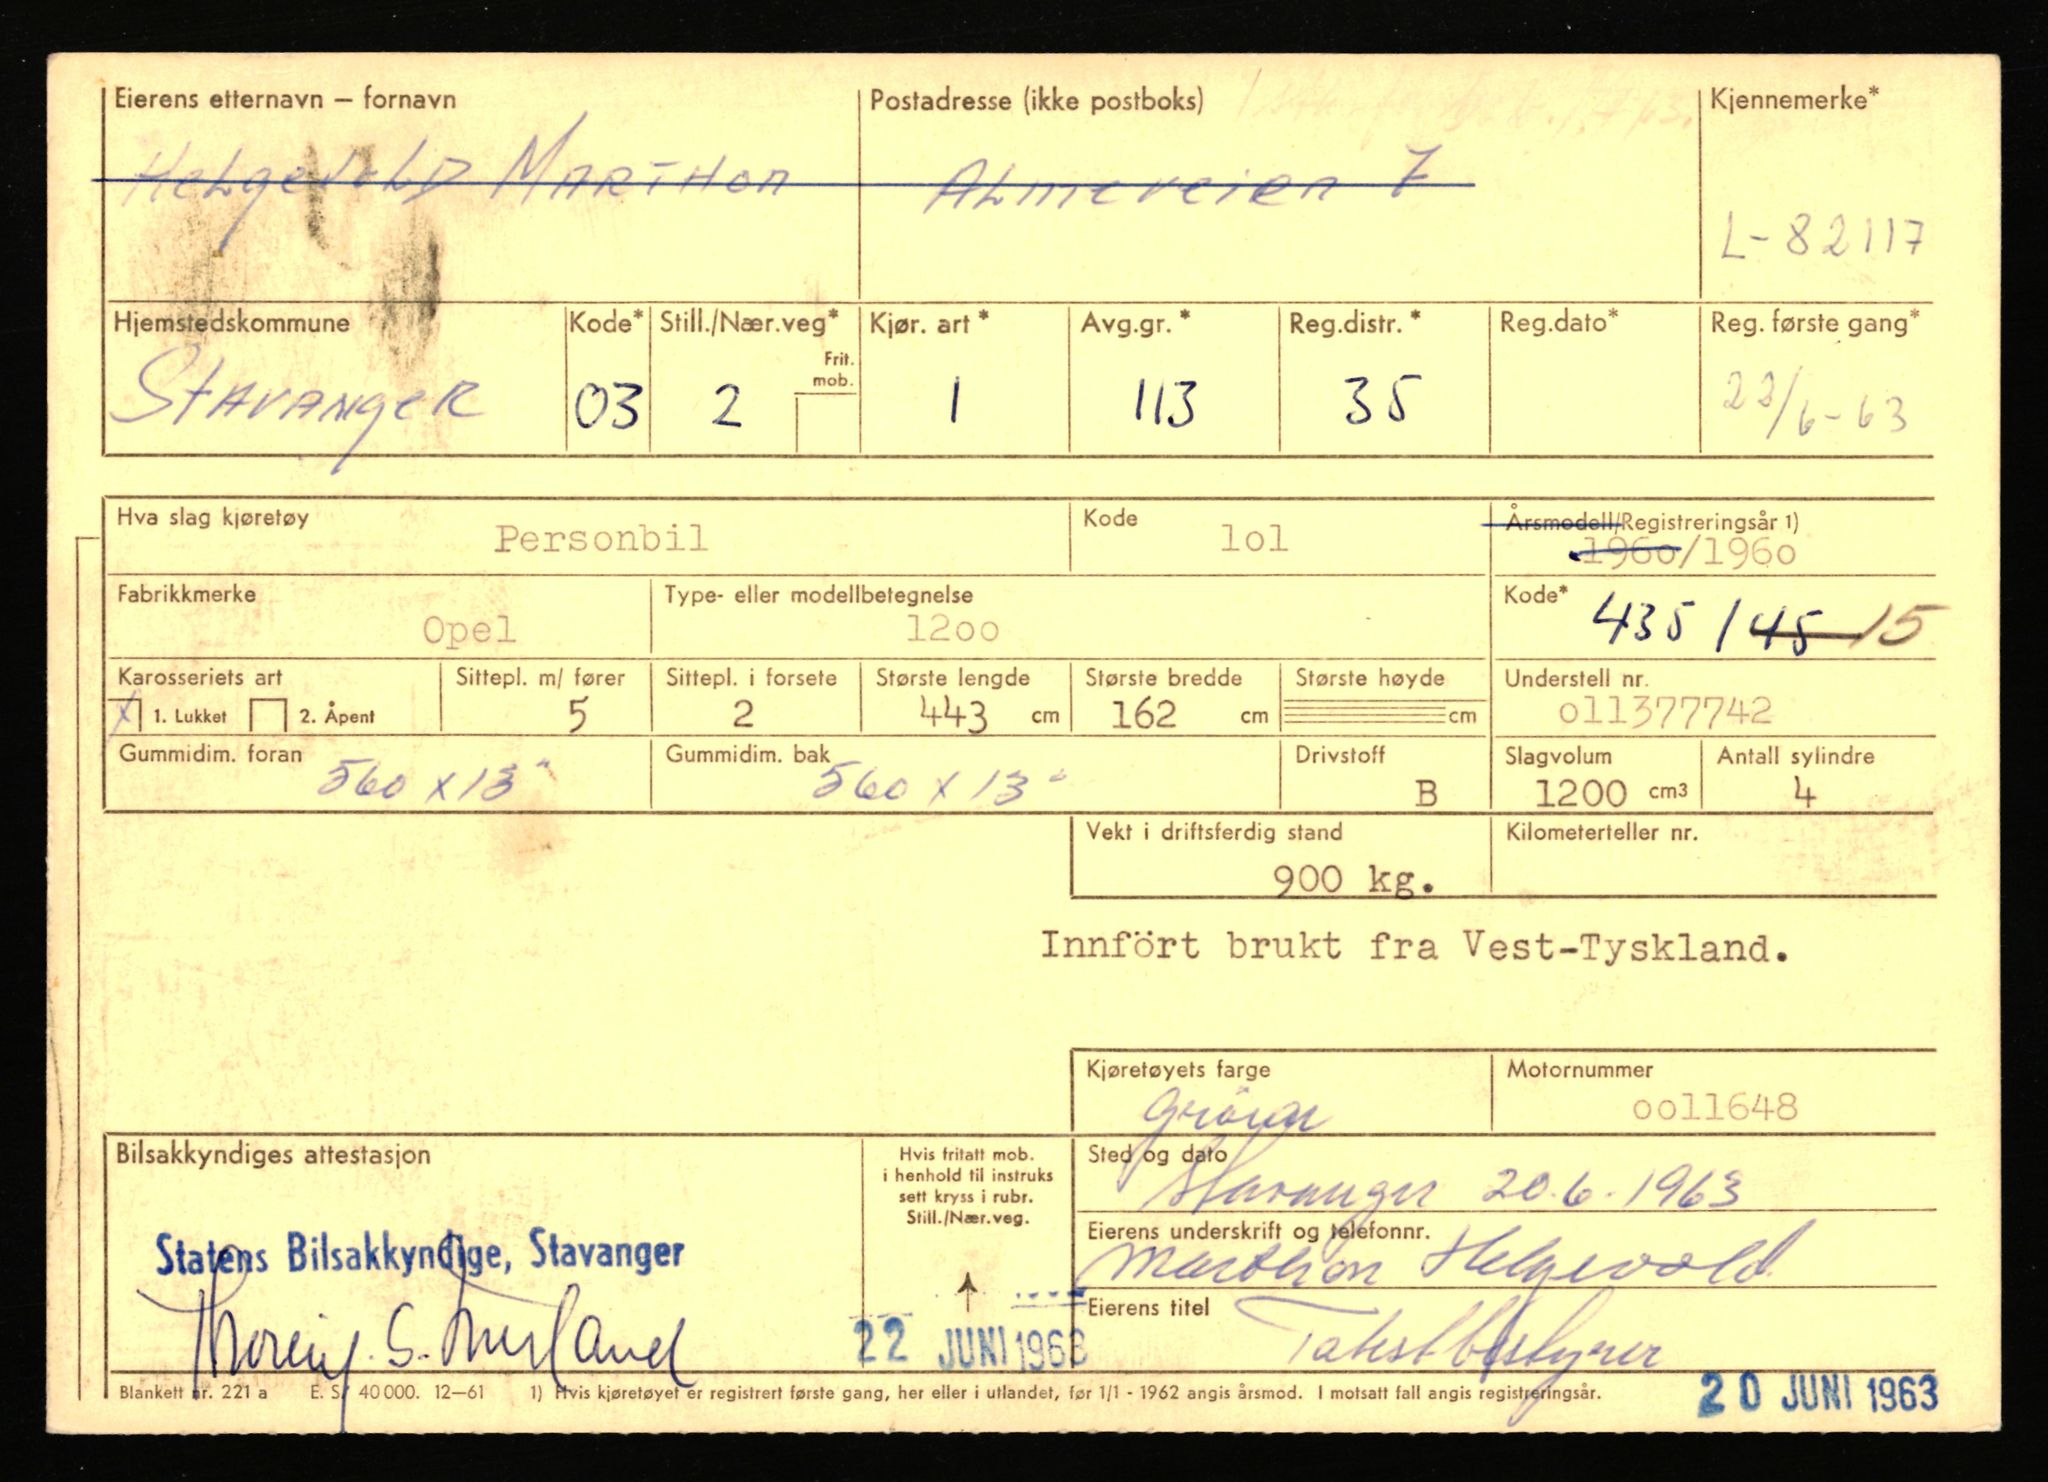 Eierens etternavn – fornavn
Postadresse (ikke postboks)
Kjennemerke*
Helgevold Marthon
Almeveien 7
L-82117
Hjemstedskommune
Kode*
Still./Nær.veg*
Frit. mob.
Kjør. art *
Avg.gr. *
Reg.distr. *
Reg.dato*
Reg. første gang*
Stavanger
03
2
1
113
35
22/6-63
Hva slag kjøretøy
Personbil
Kode
1o1
Årsmodell/Registreringsår 1)
196o/196o
Fabrikkmerke
Opel
Type- eller modellbetegnelse
12oo
Kode*
435 / 45 15
Karosseriets art
X 1. Lukket
2. Åpent
Sittepl. m/ fører
5
Sittepl. i forsete
2
Største lengde
443 cm
Største bredde
162 cm
Største høyde
cm
Understell nr.
o11377742
Gummidim. foran
560 x 13"
Gummidim. bak
560 x 13"
Drivstoff
B
Slagvolum
1200 cm3
Antall sylindre
4
Vekt i driftsferdig stand
900 kg.
Kilometerteller nr.
Innfört brukt fra Vest-Tyskland.
Kjøretøyets farge
Motornummer
oo11648
Bilsakkyndiges attestasjon
Hvis fritatt mob.
i henhold til instruks
sett kryss i rubr.
Still./Nær.veg.
Sted og dato
Stavanger 20.6.1963
Eierens underskrift og telefonnr.
Marthon Helgevold
Statens Bilsakkyndige, Stavanger
Eierens titel
22 JUNI 1963
Blankett nr. 221 a E. S. 40 000. 12–61 1) Hvis kjøretøyet er registrert første gang, her eller i utlandet, før 1/1 - 1962 angis årsmod. I motsatt fall angis registreringsår.
20 JUNI 1963